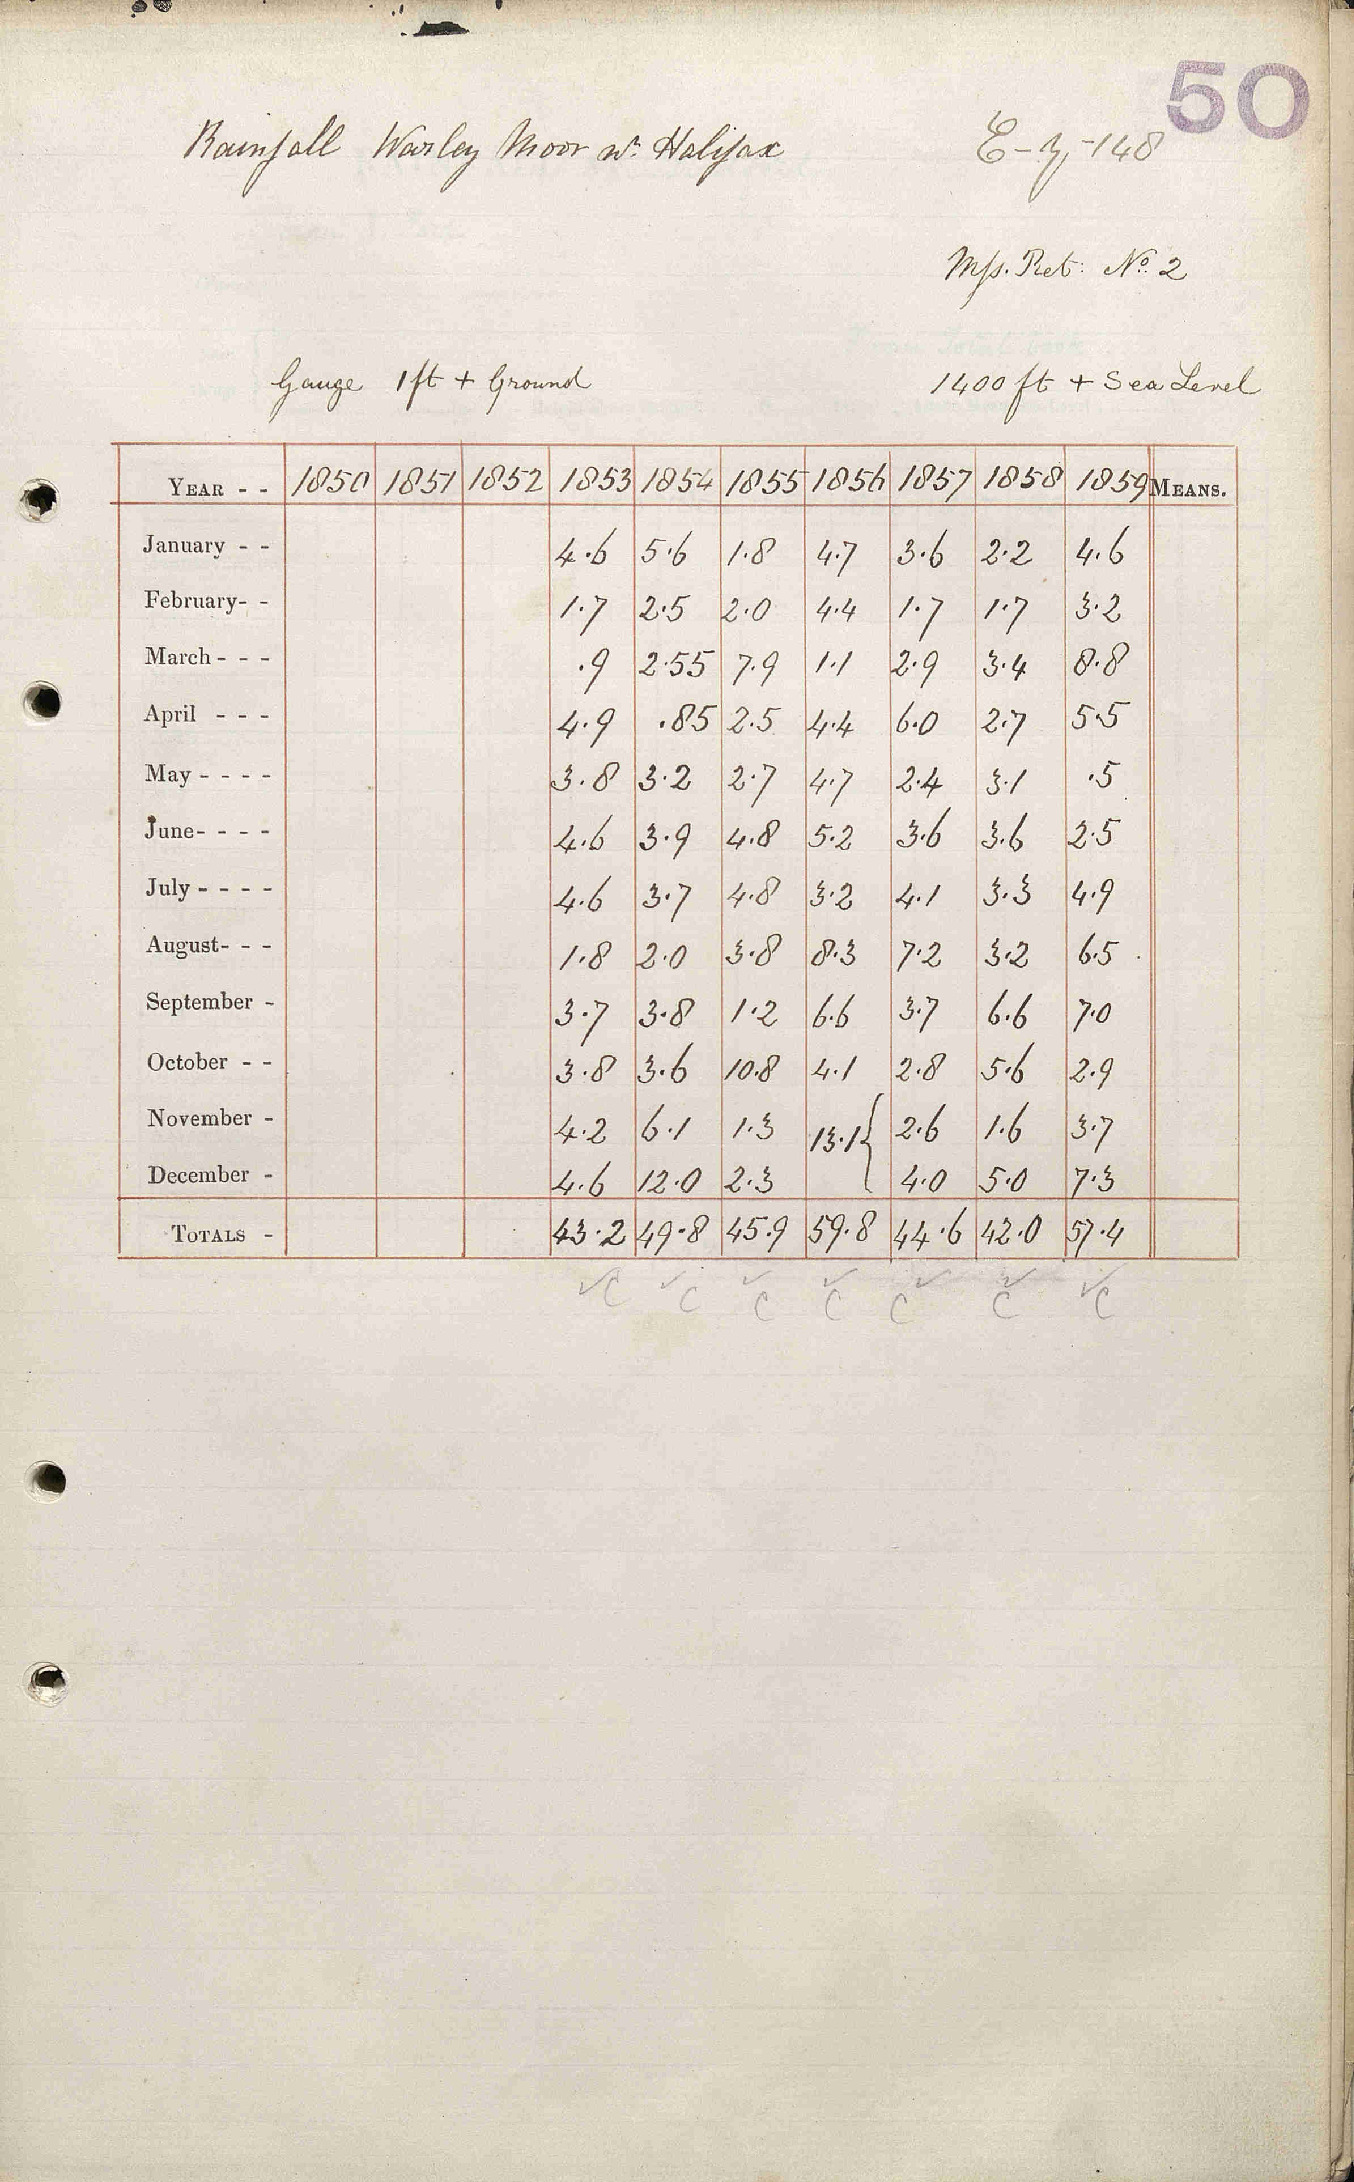 50
Rainfall Warley Moor nr. Halifax
148
Mss. Ret: No. 2
Gauge 1ft + Ground 1400 ft + Sea Level
YEAR - - 1850 1851 1852 1853 1854 1855 1856 1857 1858 1859 MEANS.
January - - 4.6 5.6 1.8 4.7 3.6 2.2 4.6
February- - 1.7 2.5 2.0 4.4 1.7 1.7 3.2
March - - - .9 2.55 7.9 1.1 2.9 3.4 8.8
April - - - 4.9 .85 2.5 4.4 6.0 2.7 5.5
May - - - - 3.8 3.2 2.7 4.7 2.4 3.1 .5
June- - - - 4.6 3.9 4.8 5.2 3.6 3.6 2.5
July - - - - 4.6 3.7 4.8 3.2 4.1 3.3 4.9
August- - - 1.8 2.0 3.8 8.3 7.2 3.2 6.5
September - 3.7 3.8 1.2 6.6 3.7 6.6 7.0
October - - 3.8 3.6 10.8 4.1 2.8 5.6 2.9
November - 4.2 6.1 1.3 13.1{ 2.6 1.6 3.7
December - 4.6 12.0 2.3 4.0 5.0 7.3
TOTALS - 43.2 49.8 45.9 59.8 44.6 42.0 57.4
✓C ✓C ✓C ✓C ✓C ✓C ✓C